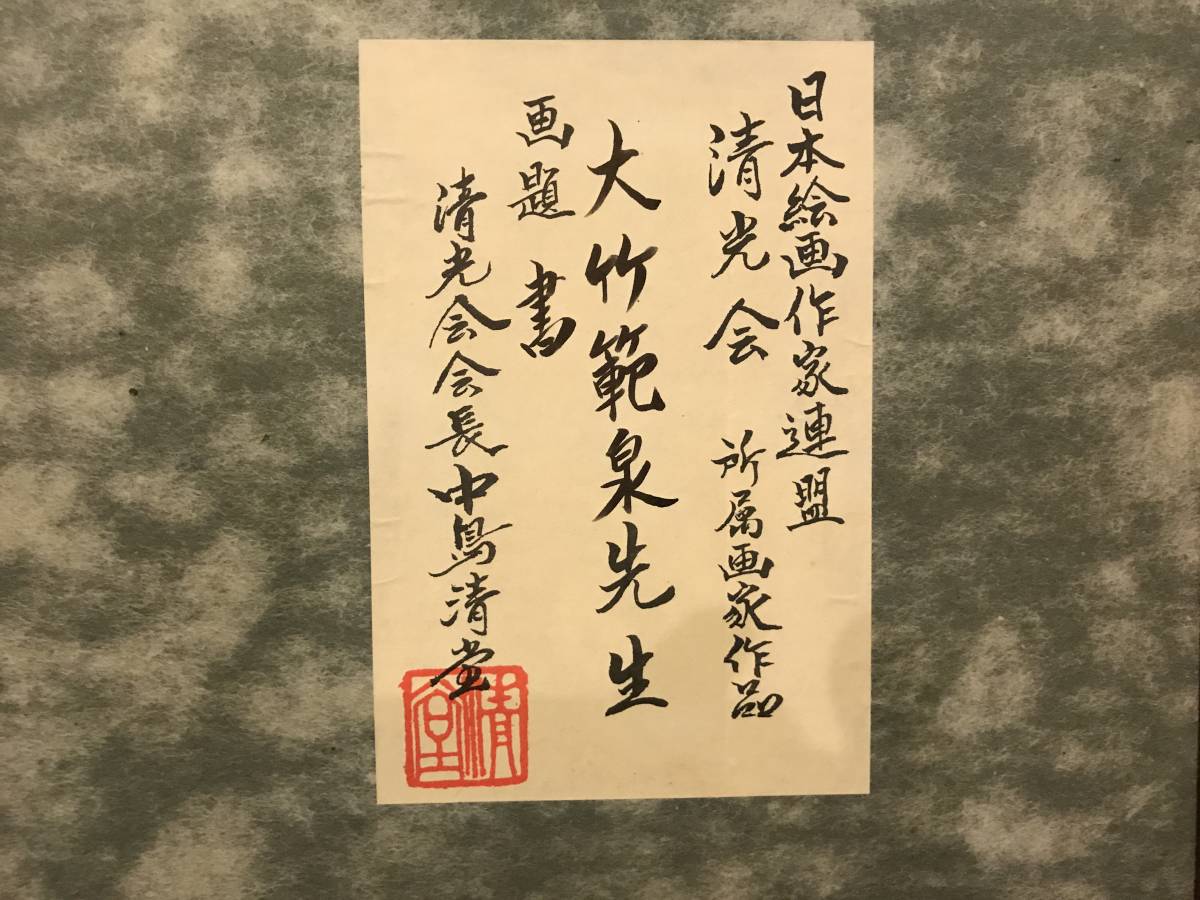 日本絵画作家連盟
清光会 所属画家作品
大竹範泉先生
画題 書
清光会会長中島清堂
清堂